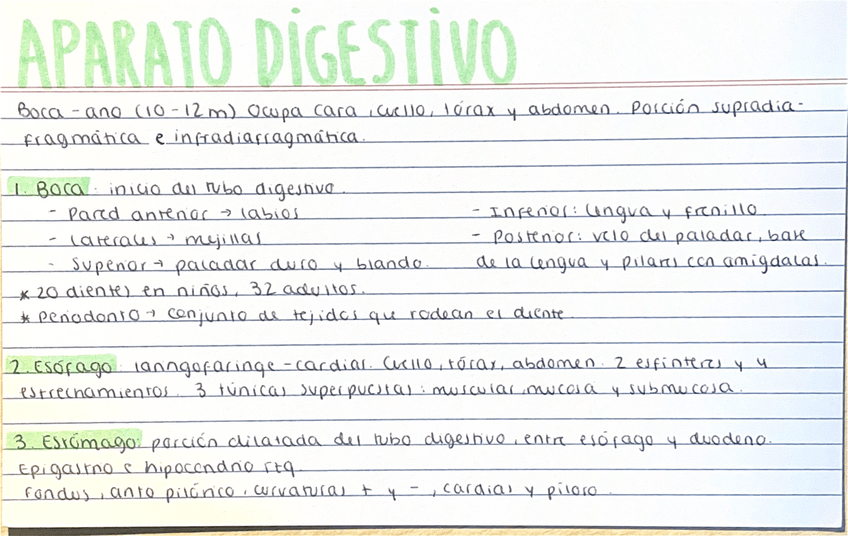 APARATO DIGESTIVO
Boca - ano (10-12m) Ocupa cara, cuello, tórax y abdomen. Porción supradia-
fragmática e infradiafragmática.
1. Boca: inicio del tubo digestivo.
- Pared anterior → labios
- Inferior: lengua y frenillo
- Laterales → mejillas
- Posterior: velo del paladar, base
- Superior → paladar duro y blando.
de la lengua y pilares con amígdalas.
* 20 dientes en niños, 32 adultos.
* Periodonto → conjunto de tejidos que rodean el diente
2. Esófago: laringofaringe - cardias. Cuello, tórax, abdomen. 2 esfínteres y 4
estrechamientos. 3 túnicas superpuestas: muscular, mucosa y submucosa.
3. Estómago: porción dilatada del tubo digestivo, entre esófago y duodeno.
Epigastrio e hipocondrio izq.
Fondus, antro pilórico, curvaturas + y -, cardias y píloro.